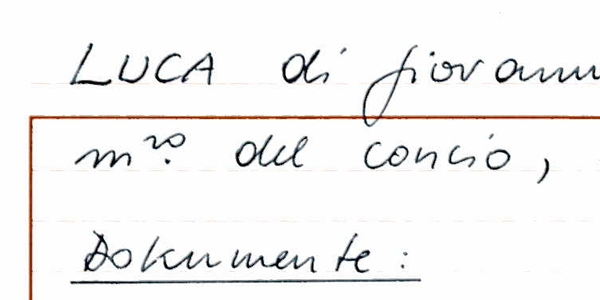 LUCA di giovann
m.ro del concio,
Dokumente: